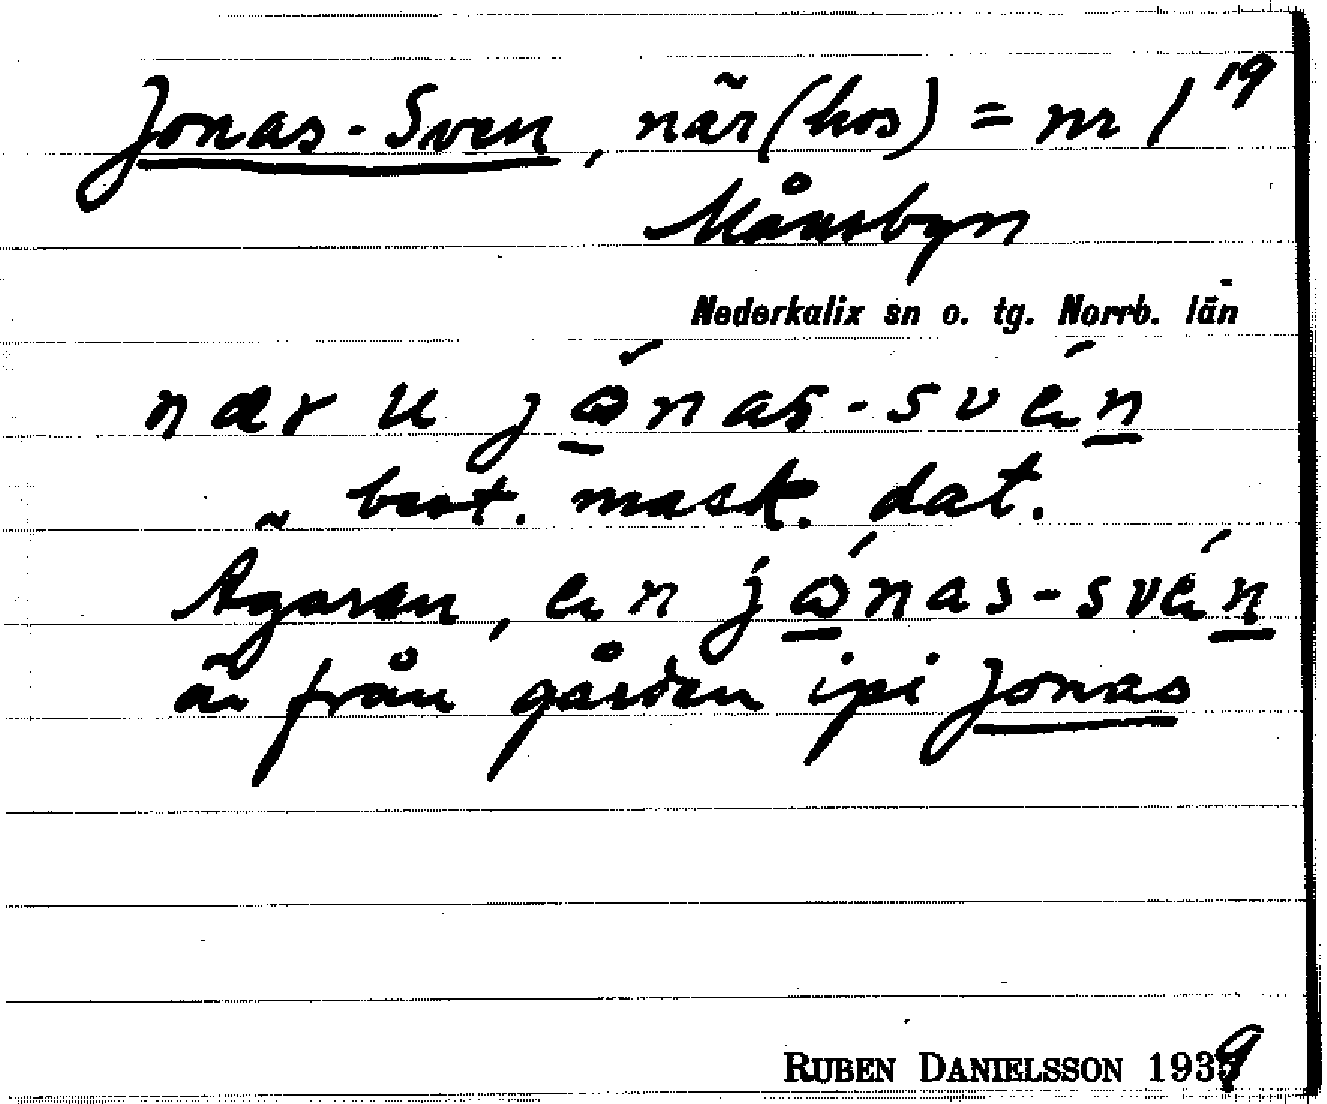 Jonas-Sven, när (hos) = nr 1¹⁹
Månsbyn
Nederkalix sn o. tg. Norrb. län
nær u jώnas-svén
best. mask. dat.
Ägaren, en jώnas-svén
är från gården ipi Jonas
RUBEN DANIELSSON 1939